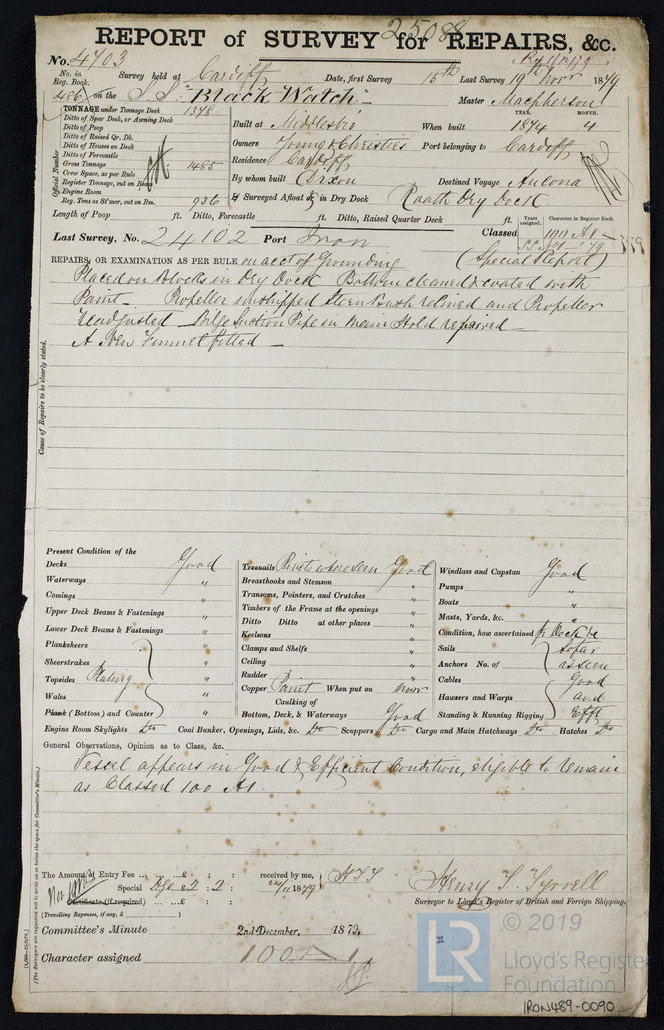 25088
REPORT of SURVEY for REPAIRS, &c.
No. 4703
No. in Reg. Book. Survey held at Cardiff Date, first Survey 15th Last Survey 19th Novr 1879
486 on the S.S. "Black Watch" Master Macpherson
TONNAGE under Tonnage Deck 1375
YEAR. MONTH.
Ditto of Spar Deck, or Awning Deck
Built at Middlesbro When built 1874 4
Ditto of Poop
Ditto of Raised Qr. Dk.
Owners Young & Christies Port belonging to Cardiff
Ditto of Houses on Deck
Ditto of Forecastle
Residence Cardiff
Gross Tonnage 1485
Crew Space, as per Rule
By whom built Dixon Destined Voyage Ancona
Register Tonnage, out on Beam
Engine Room
If Surveyed Afloat or in Dry Dock Roath Dry Dock
Reg. Tons as St'mer, out on Bm. 936
Official Number
Length of Poop ft. Ditto, Forecastle ft. Ditto, Raised Quarter Deck ft.
Years assigned. Character in Register Book.
Last Survey, No. 24102 Port Iron Classed 100 A1
S.S. No 1 - 79
REPAIRS, OR EXAMINATION AS PER RULE on acct of Grounding (Special Report)
Placed on Blocks in Dry Dock Bottom cleaned & coated with
Paint - Propeller unshipped Stern Bush relined and Propeller
readjusted - Bilge Suction Pipe in Main Hold repaired -
A New Funnel fitted -
Cause of Repairs to be clearly stated.
Present Condition of the
Decks Good
Waterways "
Comings "
Upper Deck Beams & Fastenings "
Lower Deck Beams & Fastenings "
Planksheers "
Sheerstrakes "
Topsides Plating "
Wales "
Plank (Bottom) and Counter "
Treenails Rivets where seen Good
Breasthooks and Stemson "
Transoms, Pointers, and Crutches "
Timbers of the Frame at the openings "
Ditto Ditto at other places "
Keelsons "
Clamps and Shelfs "
Ceiling "
Rudder "
Copper Paint When put on Novr
Caulking of
Bottom, Deck, & Waterways Good
Windlass and Capstan Good
Pumps "
Boats "
Masts, Yards, &c. "
Condition, how ascertained fr Deck be
Sails so far
Anchors No. of as seen
Cables Good
Hawsers and Warps and
Standing & Running Rigging Efft
Engine Room Skylights Do Coal Bunker, Openings, Lids, &c. Do Scuppers Do Cargo and Main Hatchways Do Hatches Do
General Observations, Opinion as to Class, &c.
Vessel appears in Good & Efficient Condition, eligible to remain
as Classed 100 A1.
The Amount of Entry Fee ... ... £ : :
received by me,
Special Dge £ 2 : 2 :
Certificate (if required) ... £ : :
(Travelling Expenses, if any, £ )
Henry T Tyrrell
Surveyor to Lloyd's Register of British and Foreign Shipping.
Committee's Minute 2nd December, 1879.
Character assigned 100 A1
(The Surveyors are requested not to write on or below the space for Committee's Minute.)
LR
© 2019
Lloyd's Register
Foundation
IRON489-0090